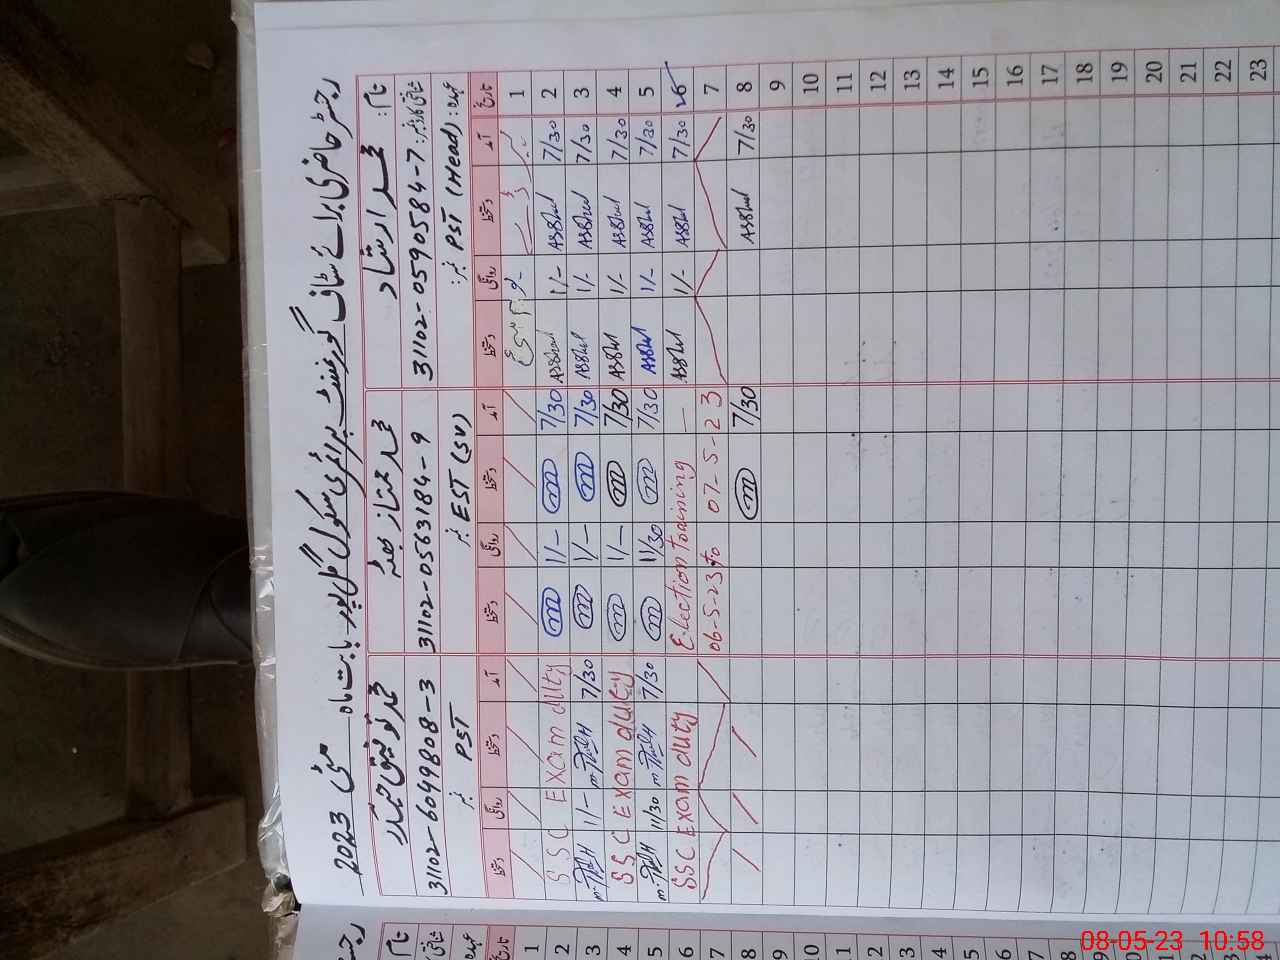 رجسٹر حاضری برائے سٹاف گورنمنٹ پرائمری سکول گل پور بابت ماہ مئی 2023
نام: محمد ارشاد محمد ممتاز بھٹہ محمد توفیق حیدر
شناختی کارڈ نمبر: 31102-0590584-7 31102-0563184-9 31102-6049808-3
عہدہ: PST (Head) نمبر: EST (SV) نمبر PST نمبر
تاریخ آمد دستخط روانگی دستخط آمد دستخط روانگی دستخط آمد دستخط روانگی دستخط
1
2 7/30 Asshad 1/- Asshad 7/30 m 11/- m SSC Exam duty
3 7/30 Asshad 1/- Asshad 7/30 m 1/- m 7/30 1/-
4 7/30 Asshad 1/- Asshad 7/30 m 1/- m SSC Exam duty
5 7/30 Asshad 1/- Asshad 7/30 m 11/30 m 7/30 11/30
6 7/30 Asshad 1/- Asshad — Election training SSC Exam duty
7 06-5-23 to 07-5-23
8 7/30 Asshad 7/30 m
9
10
11
12
13
14
15
16
17
18
19
20
21
22
23
رجسٹر
نام
تاریخ
1
2
3
4
5
6
7
8
9
10
11
12
13
14
15
16
17
08-05-23 10:58